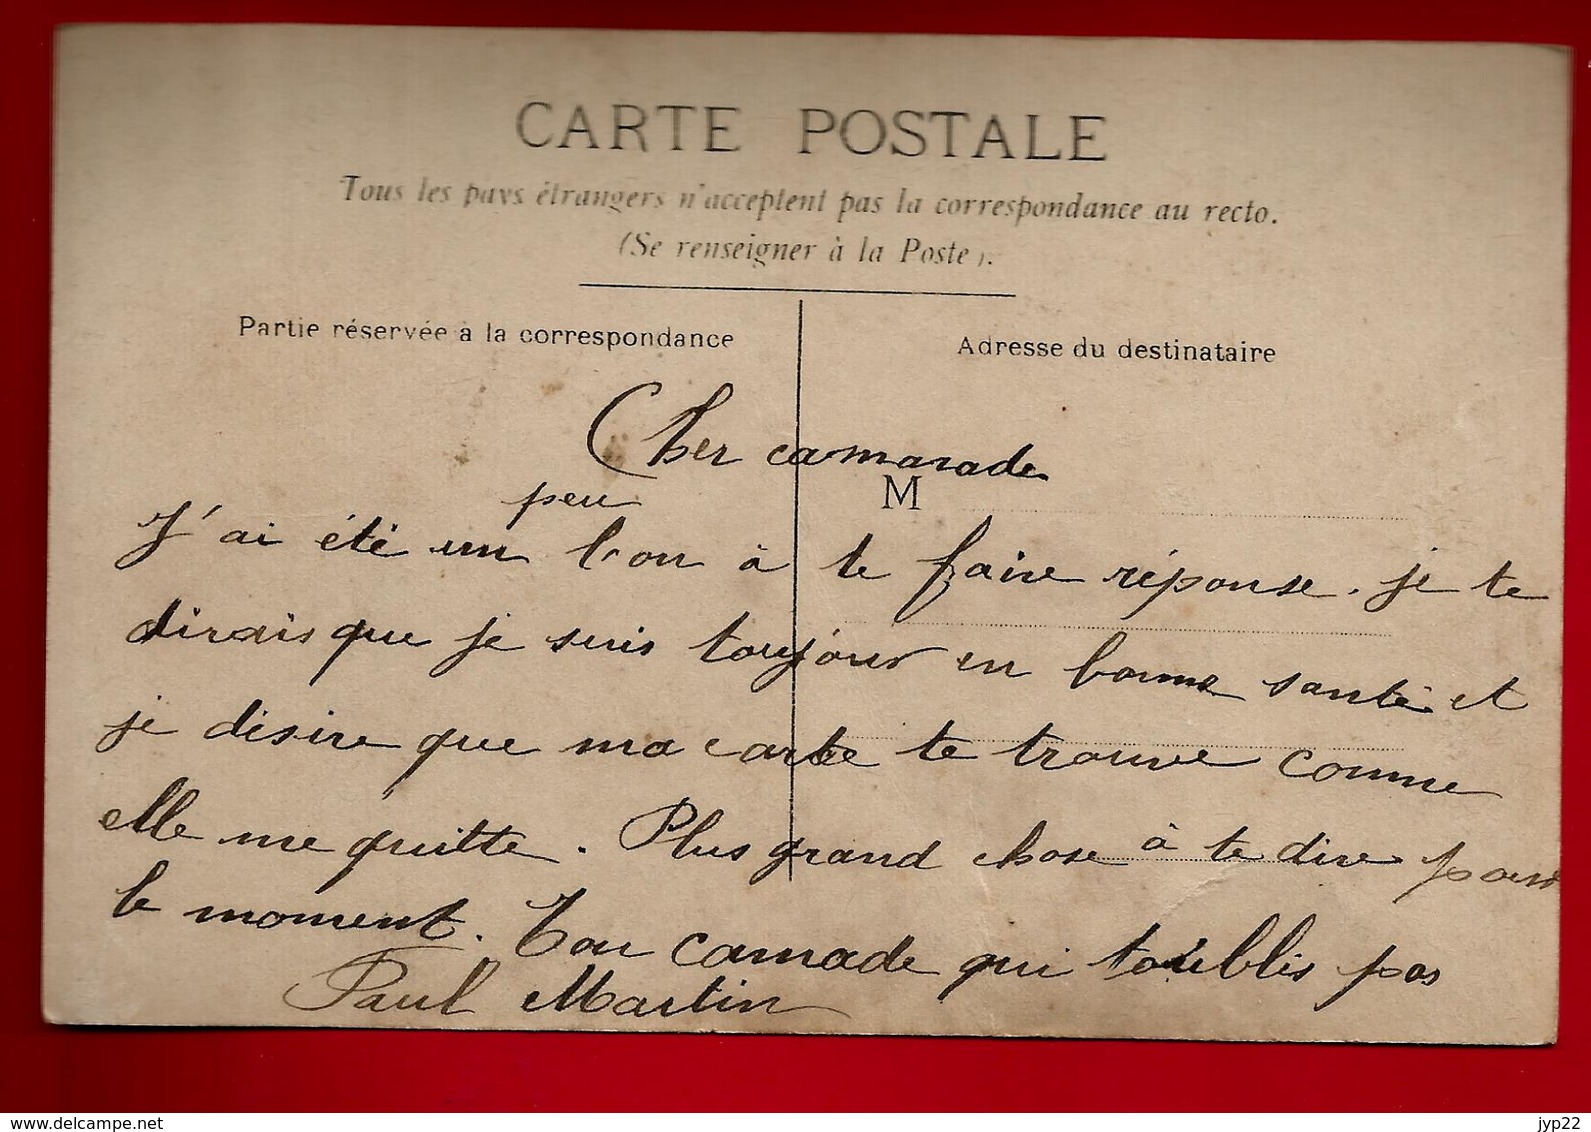 CARTE POSTALE
Tous les pays étrangers n'acceptent pas la correspondance au recto.
(Se renseigner à la Poste).
Partie réservée à la correspondance
Adresse du destinataire
Cher camarade
M
peu
J'ai été un lon à te faire réponse. je te
dirais que je suis toujour en bonne santé et
je désire que ma carte te trouve comme
elle me quitte. Plus grand chose à te dire pour
le moment. Ton camade qui toublis pas
Paul Martin
www.delcampe.net
jyp22